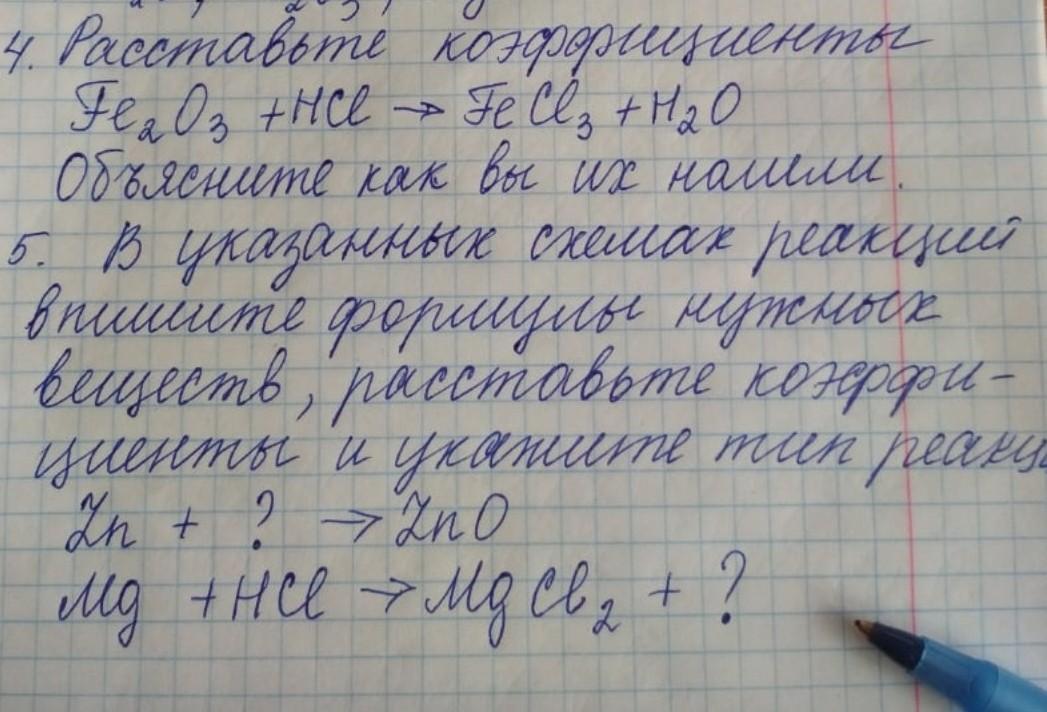 4. Расставьте коэффициенты
Fe₂O₃ + HCl → FeCl₃ + H₂O
Объясните как вы их нашли.
5. В указанных схемах реакций
впишите формулы нужных
веществ, расставьте коэффи-
циенты и укажите тип реакц
Zn + ? → ZnO
Mg + HCl → MgCl₂ + ?